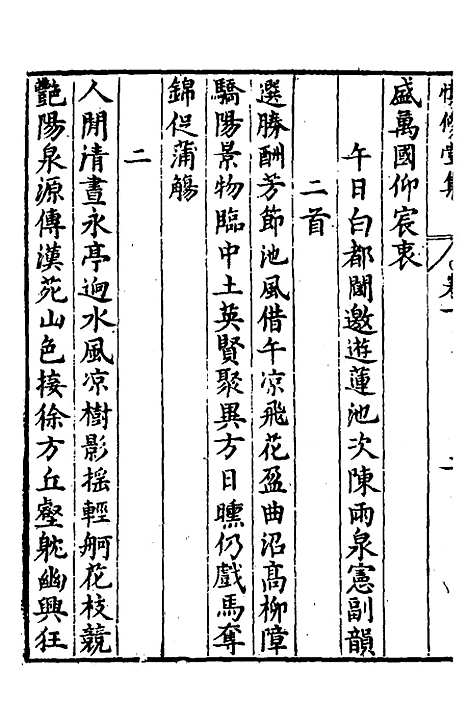 盛萬國仰宸衷
午日白都閫邀遊蓮池次陳雨泉憲副韻
二首
選勝酬芳節池風借午凉飛花盈曲沼高柳障
驕陽景物臨中土英賢聚異方日曛仍戲馬奪
錦促蒲觴
二
人閒清晝永亭逈水風凉樹影搖輕舸花枝競
艷陽泉源傳漢苑山色接徐方丘壑躭幽興狂